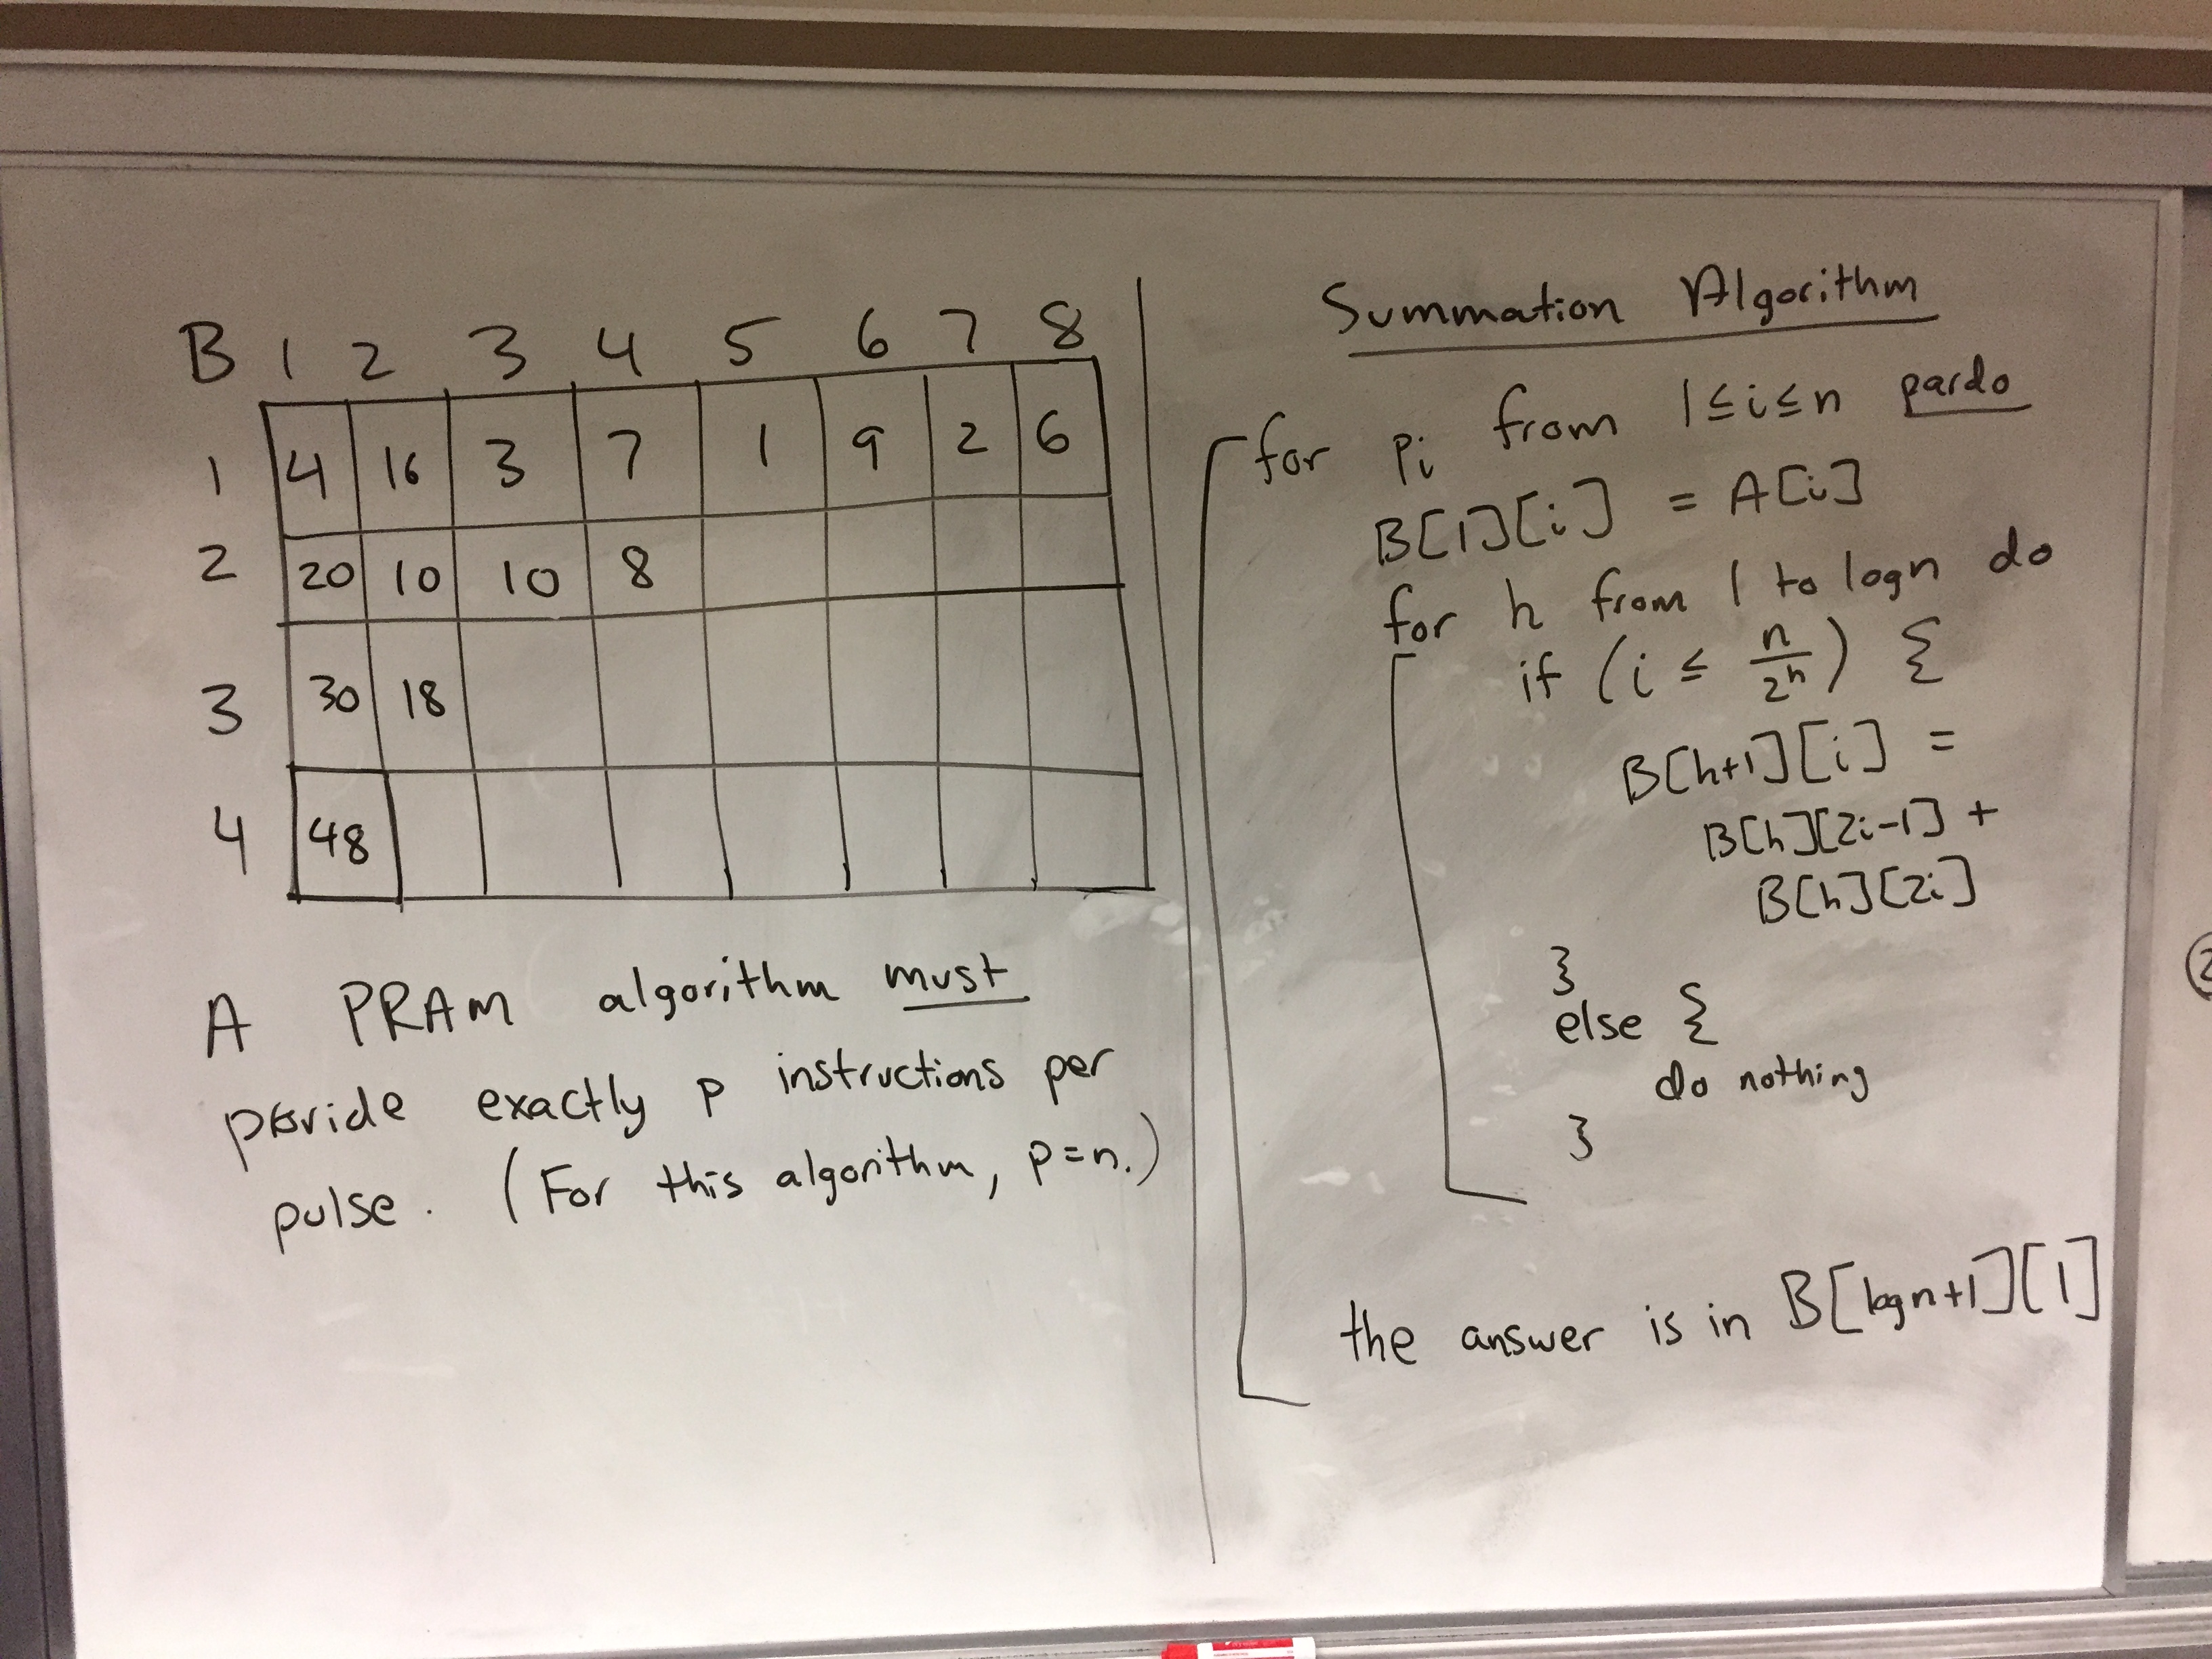 B 1 2 3 4 5 6 7 8
1 4 16 3 7 1 9 2 6
2 20 10 10 8
3 30 18
4 48
A PRAM algorithm must
provide exactly p instructions per
pulse. (For this algorithm, p=n.)
Summation Algorithm
for Pi from 1≤i≤n pardo
B[1][i] = A[i]
for h from 1 to logn do
if (i ≤ n/2^h) {
B[h+1][i] =
B[h][2i-1] +
B[h][2i]
}
else {
do nothing
}
the answer is in B[logn+1][1]